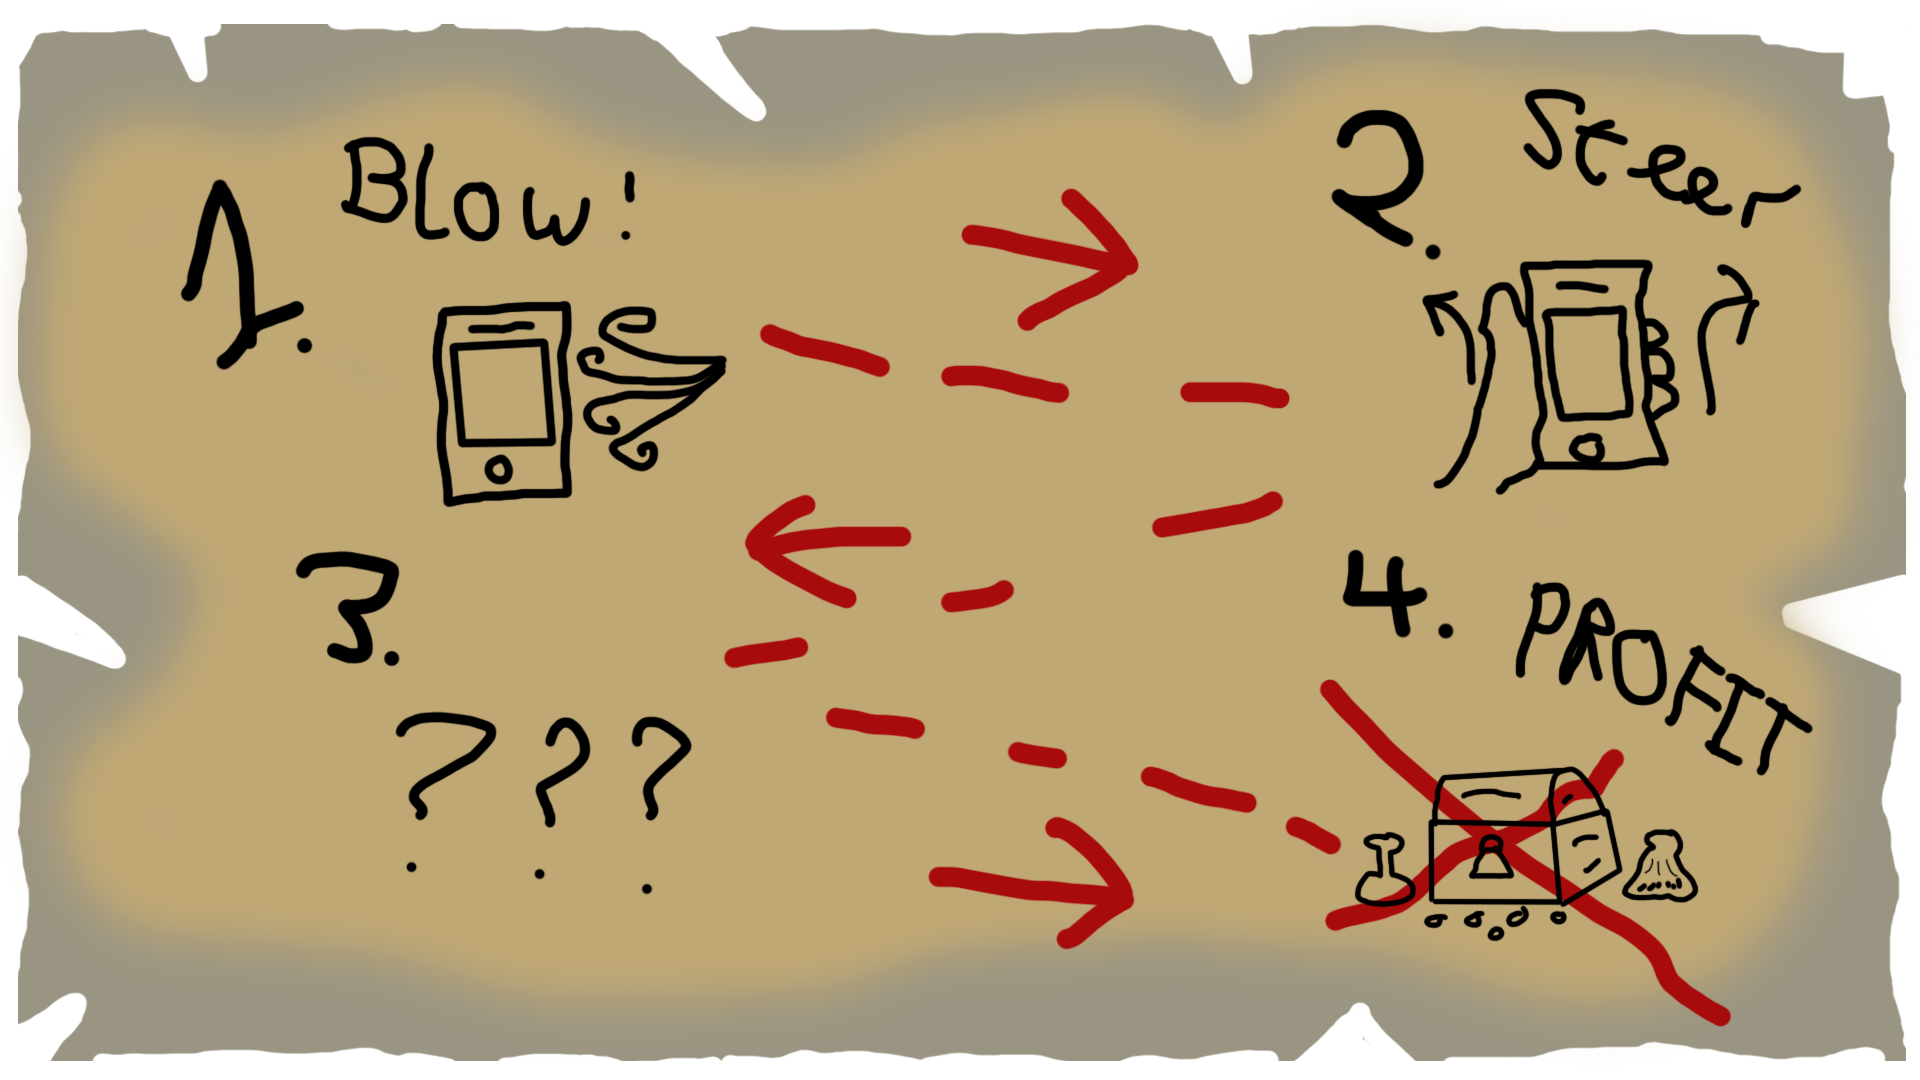 1. Blow!
2. Steer
3. ???
4. PROFIT